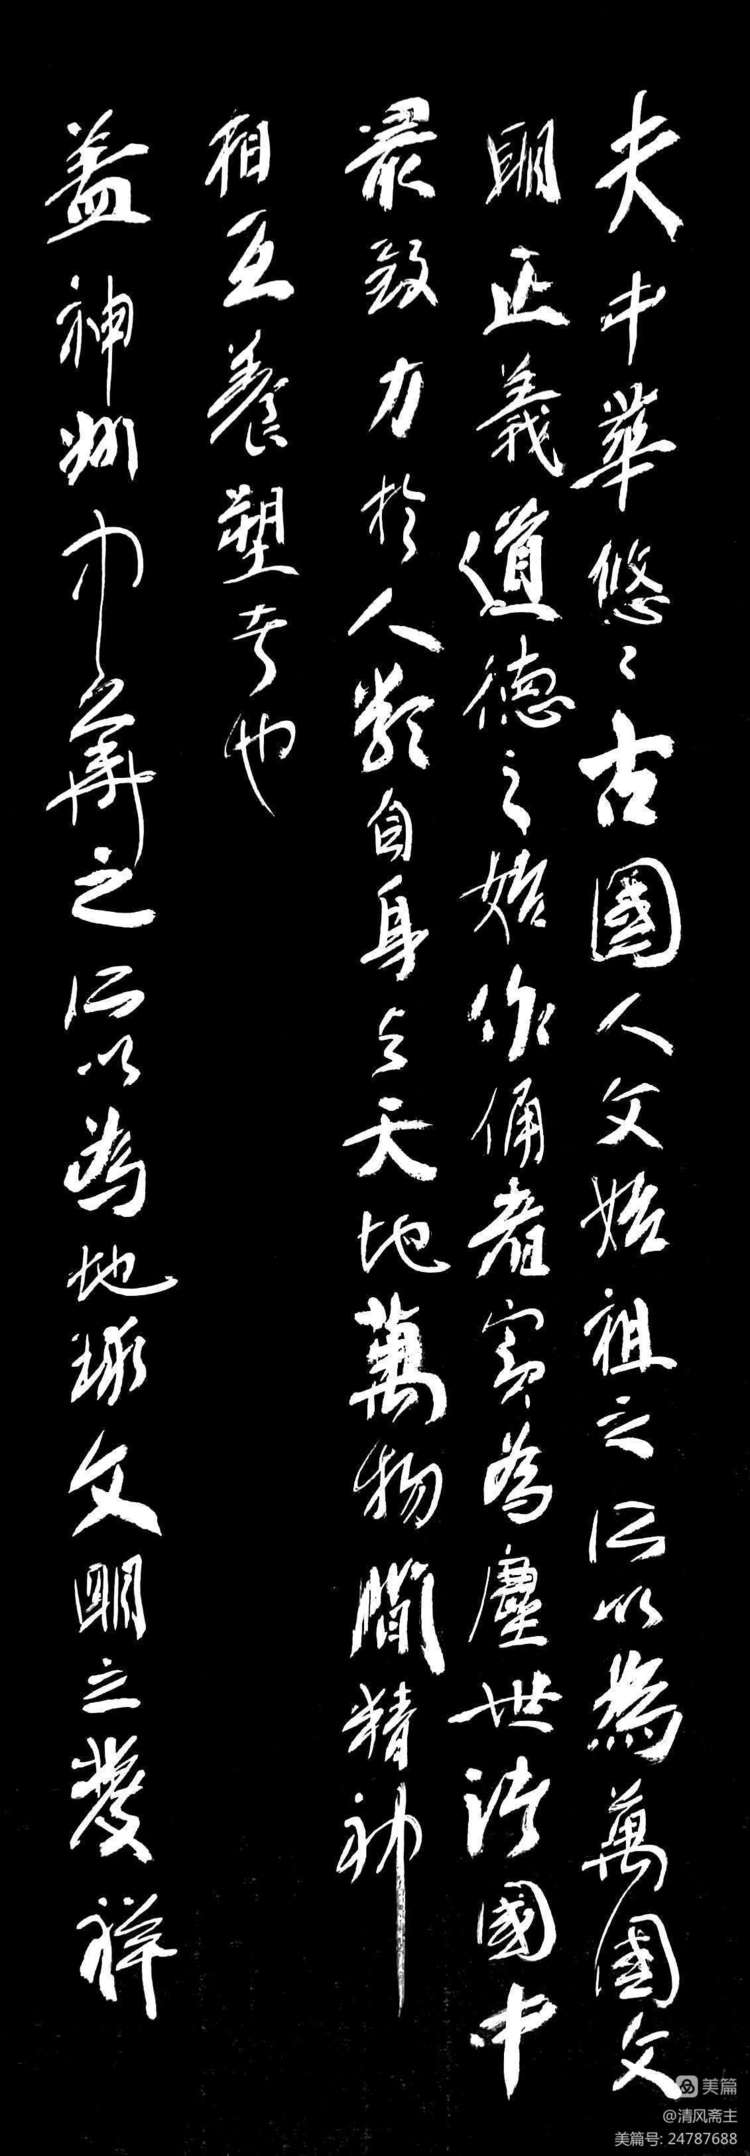 夫中華悠々古國人文始祖之所以為萬國文
明正義道德之始作俑者實為塵世諸國中
最致力於人類自身与天地萬物間精神
相互養塑者也
蓋神州中華之所以為地球文明之發祥
美篇
@清风斋主
美篇号: 24787688